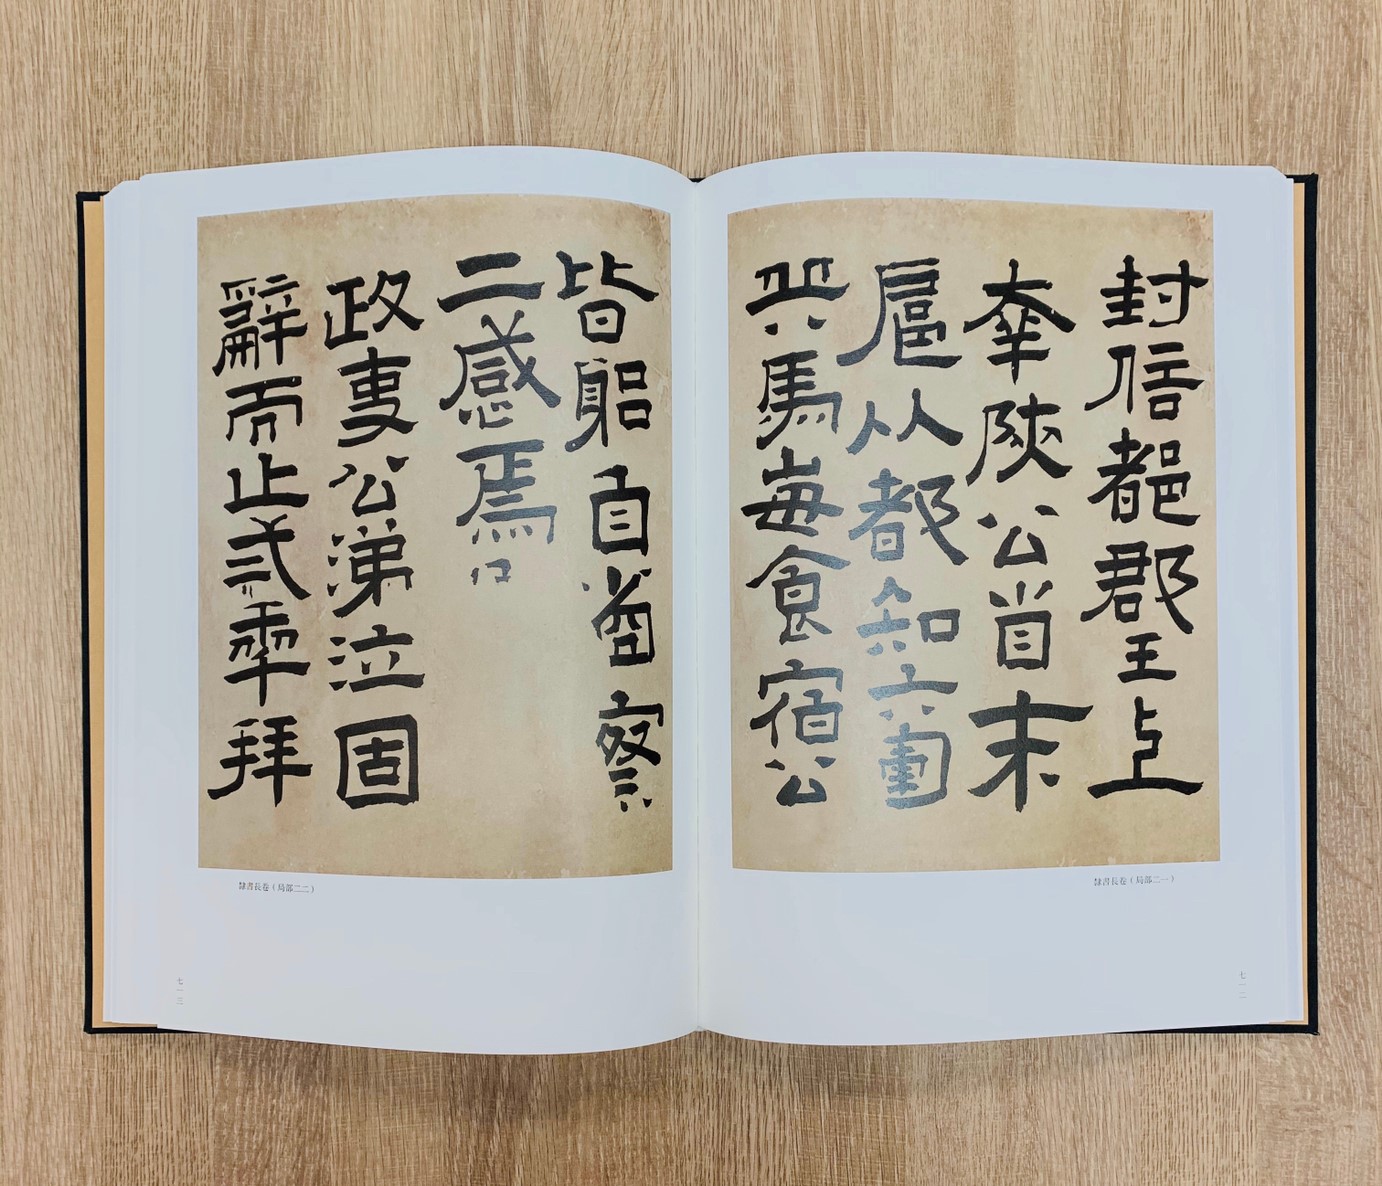 封信都郡王上
幸陝公首末
扈从都知六軍
兵馬每食宿公
隸書長卷（局部二一）
七一二
皆躳自省察
二感焉
政事公涕泣固
辭而止弍年拜
隸書長卷（局部二二）
七一三